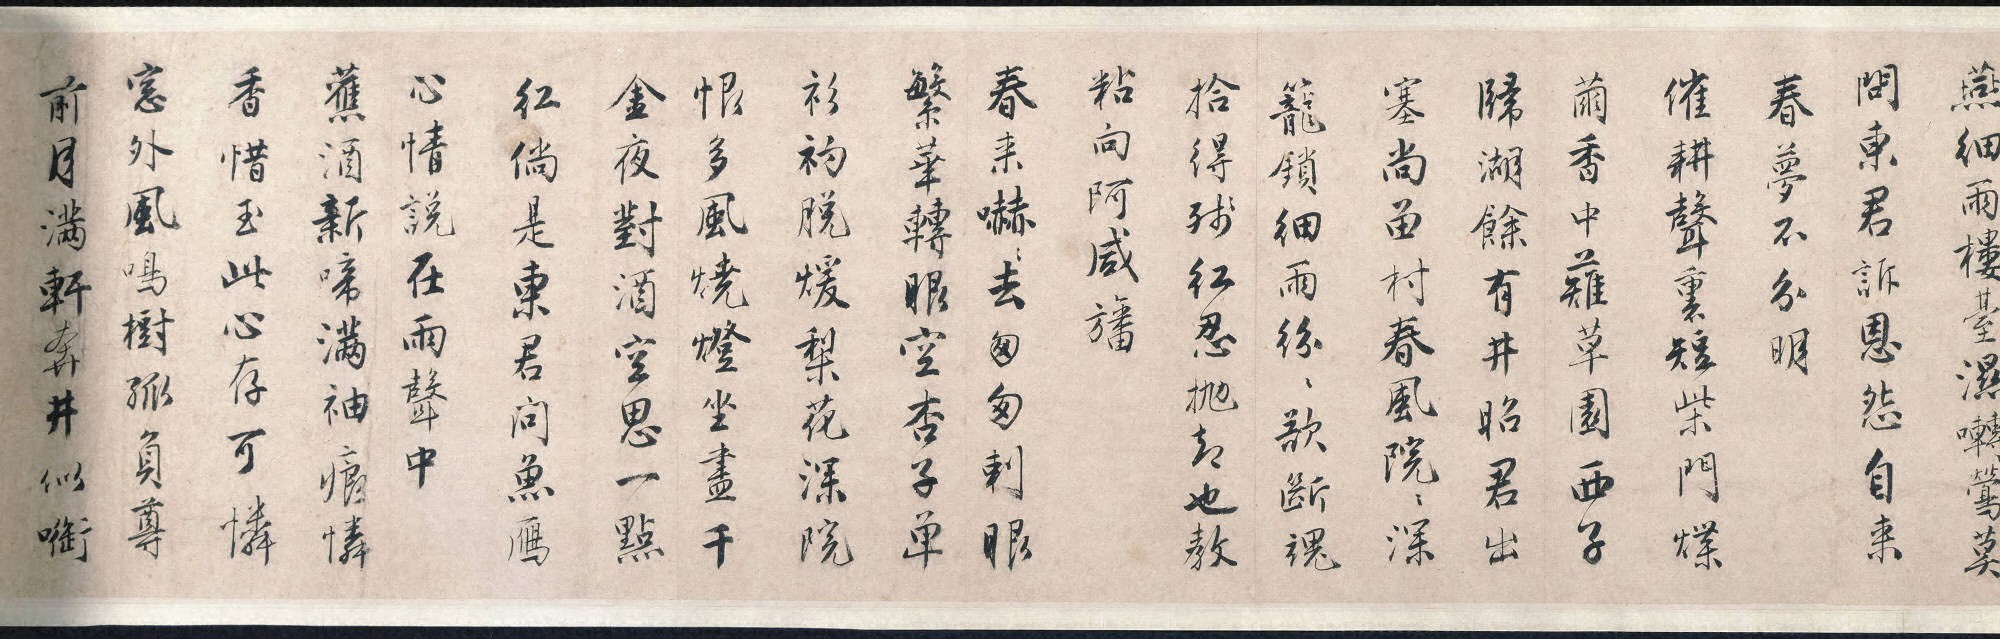 燕細雨樓臺濕囀鶯莫
問東君訴恩怨自來
春夢不分明
催耕聲裏短柴門煠
蔄香中薙草園西子
歸湖餘有井昭君出
塞尚留村春風院〻深
籠鎖細雨紛〻欲斷魂
拾得殘紅忍拋却也教
粘向阿咸旛
春來嚇〻去匆匆刺眼
繁華轉眼空杏子單
衫初脫煖梨花深院
恨多風燒燈坐盡千
金夜對酒空思一點
紅倘是東君問魚鴈
心情說在雨聲中
蕉酒新啼滿袖痕憐
香惜玉此心存可憐
窓外風鳴樹孤負尊
前月滿軒奔井似衘